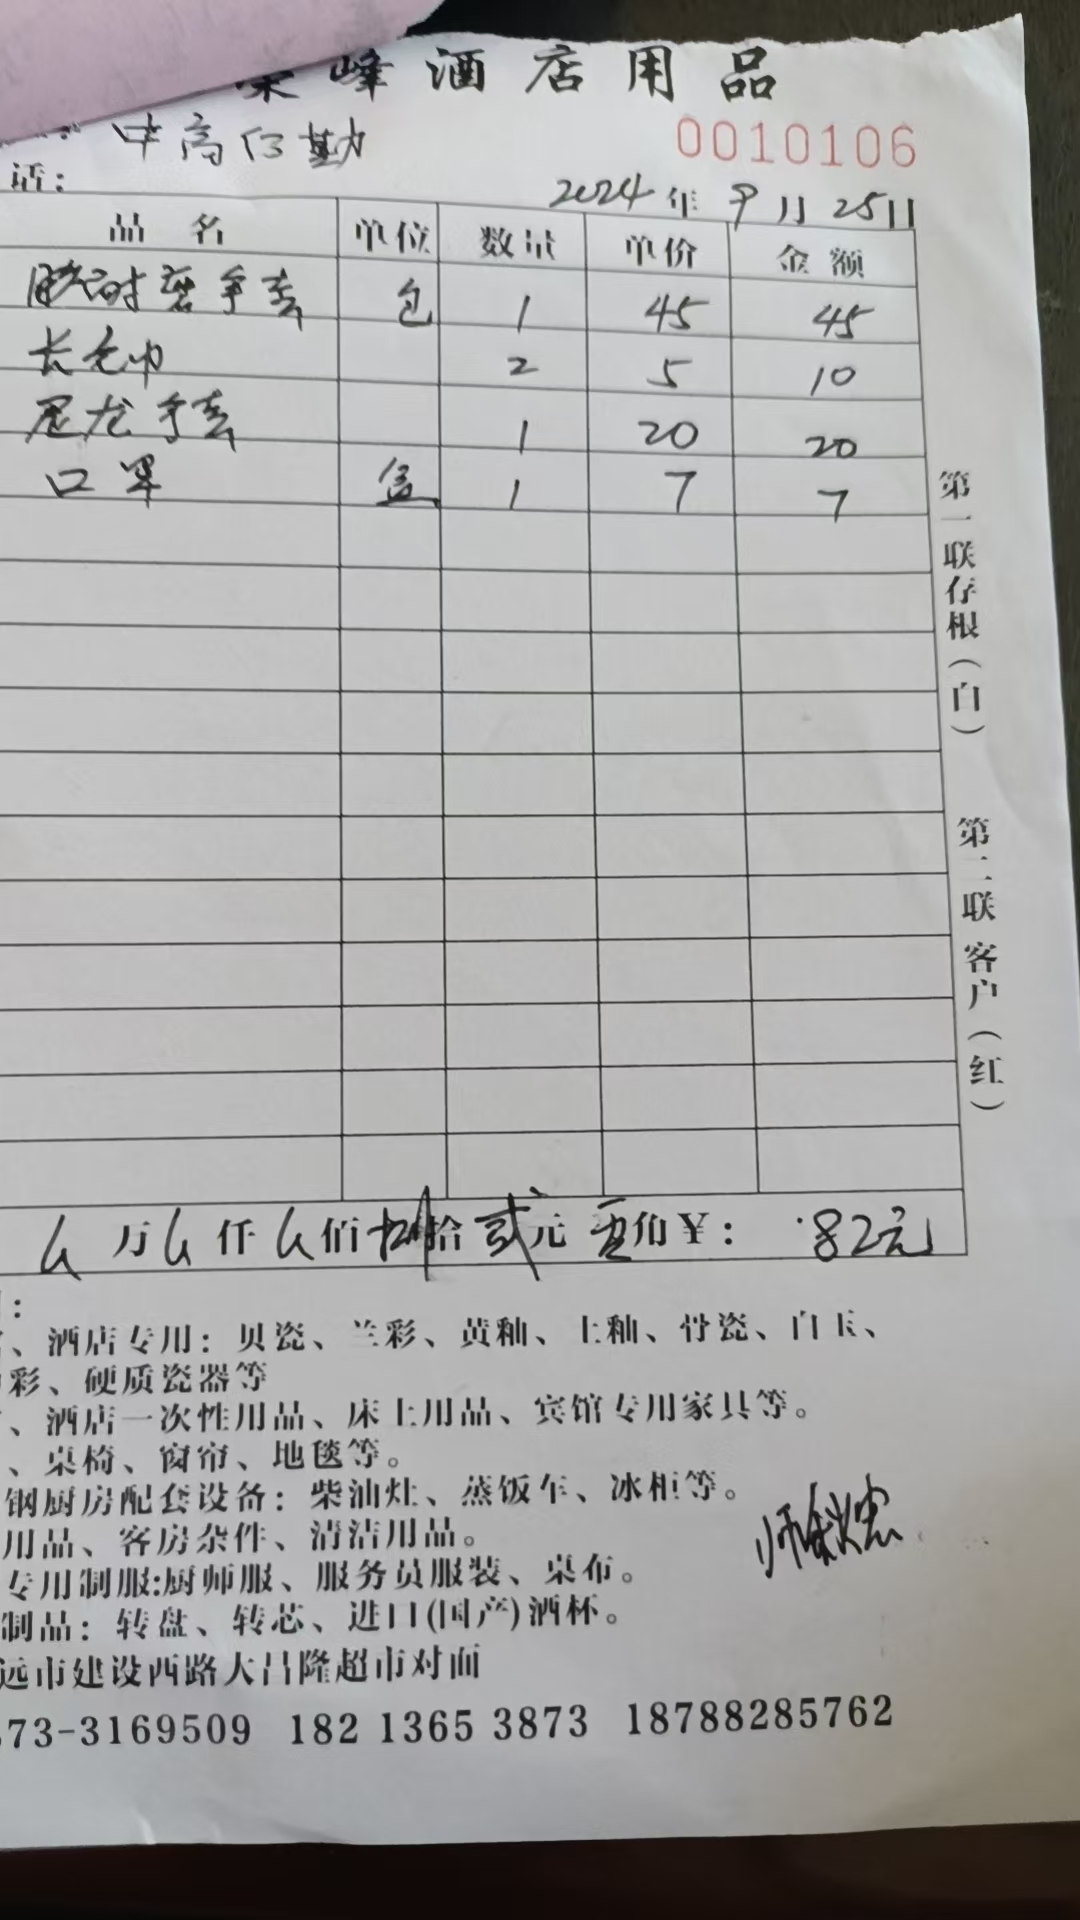 峰酒店用品
0010106
话:
2024年9月25日
品名 单位 数量 单价 金额
耐磨手套 包 1 45 45
长毛巾 2 5 10
尼龙手套 1 20 20
口罩 盒 1 7 7
万 仟 佰 捌拾贰元 角¥: 82元
第一联存根(白)
第二联客户(红)
:
、酒店专用: 贝瓷、兰彩、黄釉、土釉、骨瓷、白玉、
彩、硬质瓷器等
、酒店一次性用品、床上用品、宾馆专用家具等。
、桌椅、窗帘、地毯等。
钢厨房配套设备: 柴油灶、蒸饭车、冰柜等。
用品、客房杂件、清洁用品。
专用制服:厨师服、服务员服装、桌布。
制品: 转盘、转芯、进口(国产)酒杯。
远市建设西路大昌隆超市对面
73-3169509 182 1365 3873 18788285762